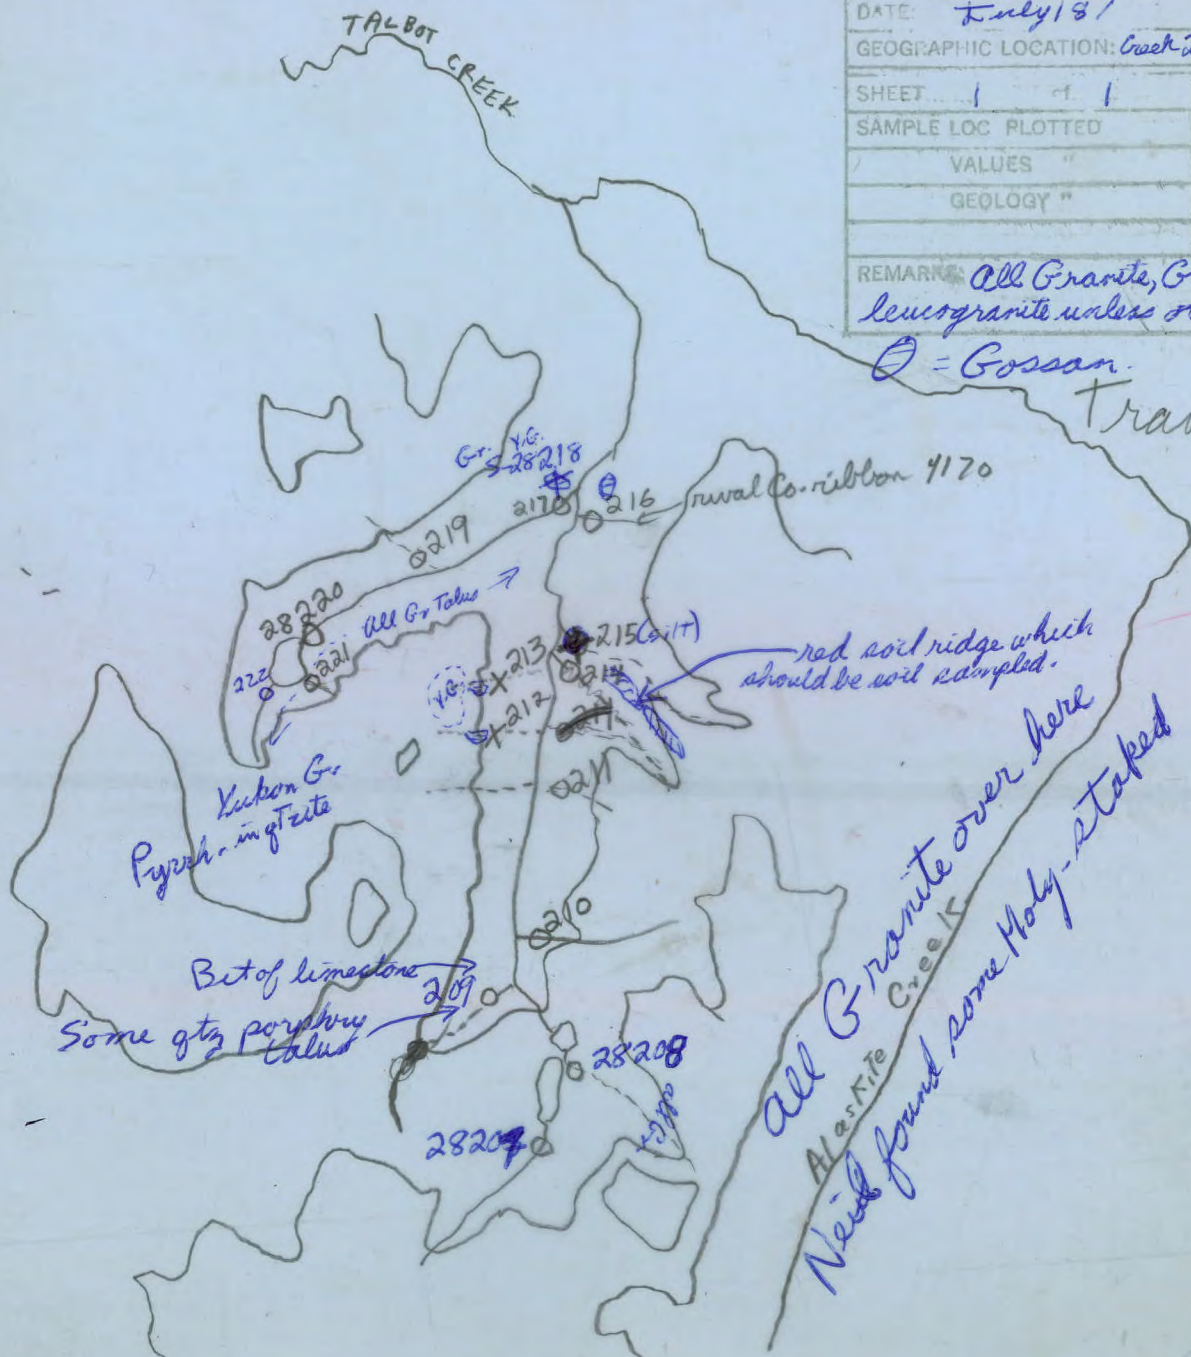 TALBOT CREEK
DATE: July 18/
GEOGRAPHIC LOCATION: Creek
SHEET 1 of 1
SAMPLE LOC PLOTTED
VALUES "
GEOLOGY "
REMARKS: All Granite, G
leucogranite unless
θ = Gossan.
Gr. Y.G.
S-28218
θ
217
216
rival Co. ribbon 4170
219
28220
All Gr Talus
221
222
Y.G.
213
215 (silt)
214
212
211
211
red soil ridge which
should be soil sampled.
Yukon Gr.
Pyrrh. in qtzite
210
Bit of limestone
209
Some qtz porphry
talus
28208
28207
All Granite over here
Alaskite Creek
Neil found some Moly-staked